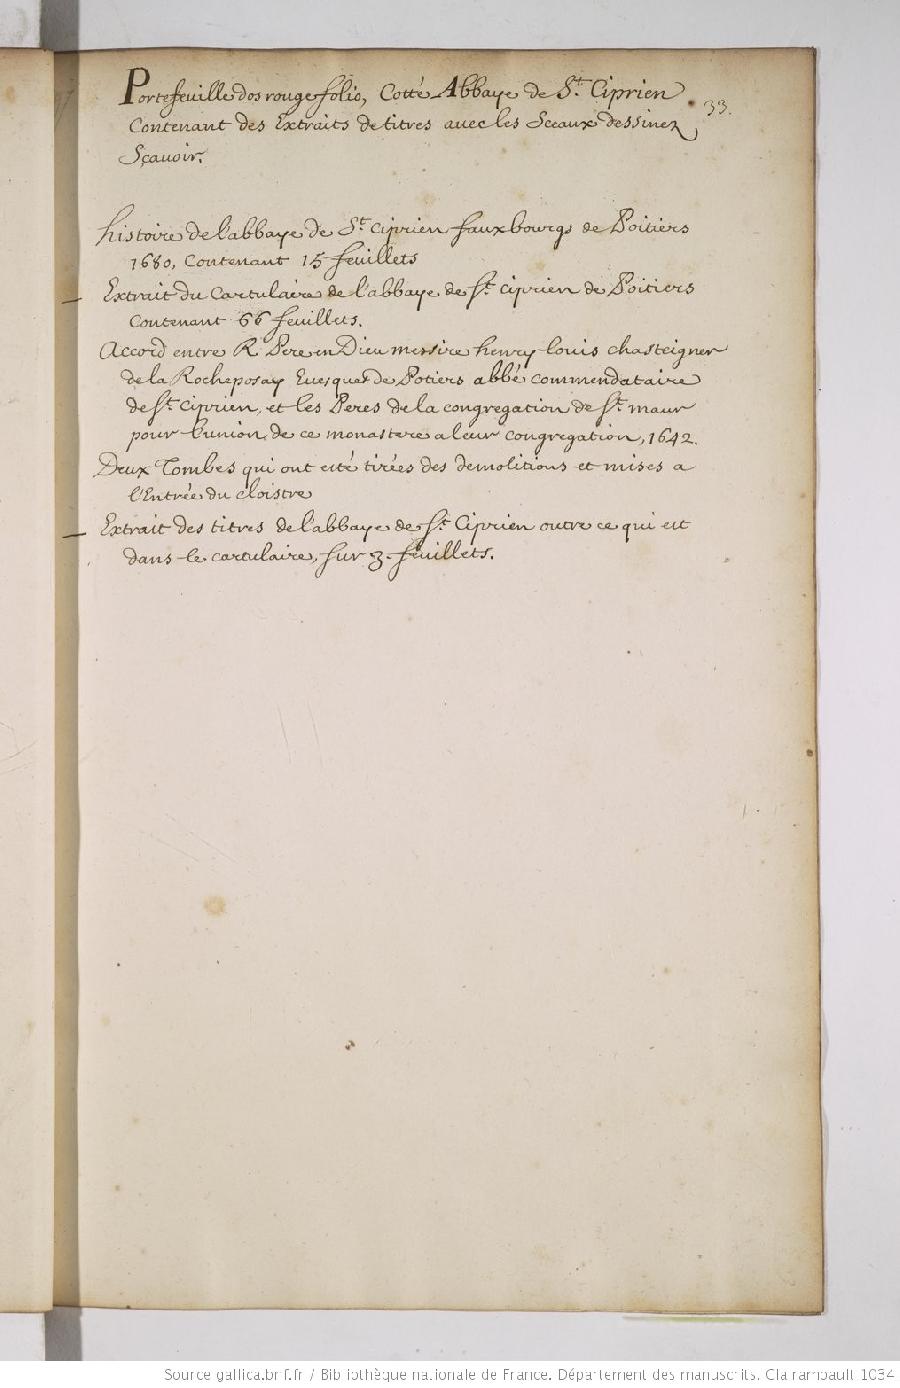 Portefeuille dos rouge folio, Cotté Abbaye de St. Ciprien
33.
Contenant des Extraits de titres avec les Sceaux dessinez,
Sçavoir.
histoire de l'abbaye de St. Ciprien fauxbourgs de Poitiers
1680, Contenant 15 feuillets
Extrait du Cartulaire de l'abbaye de St. Ciprien de Poitiers
Contenant 66 feuillets.
Accord entre R. Pere en Dieu messire henry louis chasteigner
de la Rocheposay Evesque de Potiers abbé commendataire
de St. Ciprien, et les Peres de la congregation de St. maur
pour l'union de ce monastere a leur congregation, 1642.
Deux Tombes qui ont esté tirées des demolitions et mises a
l'Entrée du cloistre
Extrait des titres de l'abbaye de St. Ciprien outre ce qui est
dans le cartulaire, sur 3 feuillets.
Source gallica.bnf.fr / Bibliothèque nationale de France. Département des manuscrits. Clairambault 1034